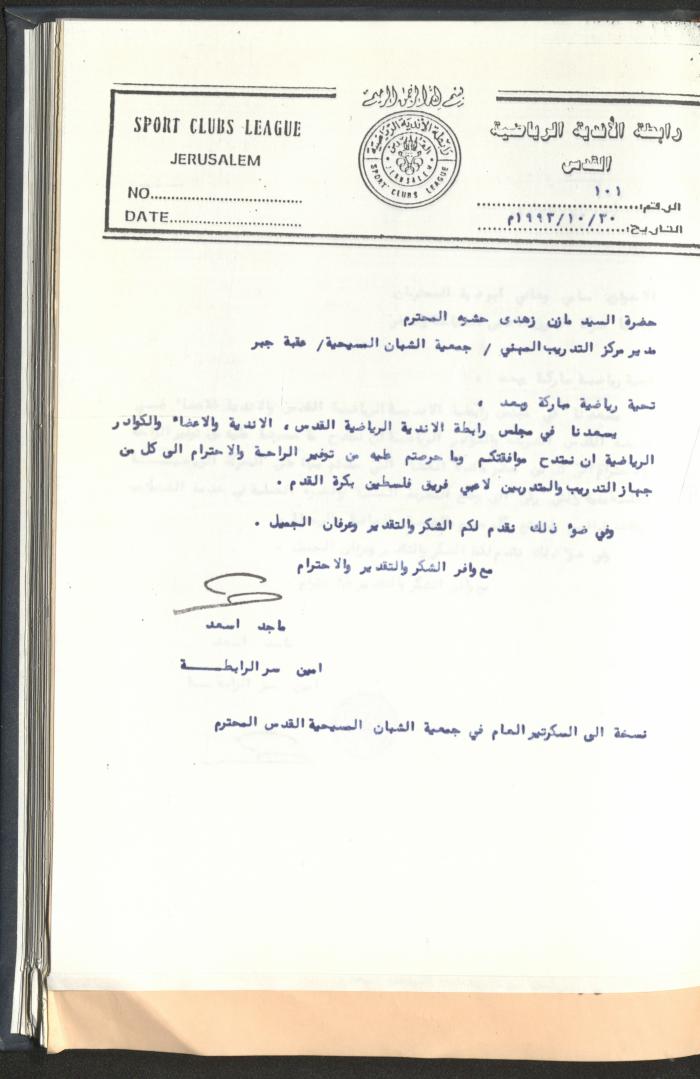 بسم الله الرحمن الرحيم
SPORT CLUBS LEAGUE
JERUSALEM
NO.
DATE.
رابطة الأندية الرياضية
القدس
JERUSALEM
SPORT CLUBS LEAGUE
رابطة الأندية الرياضية
القدس
الرقم: ١٠١
التاريخ: ١٩٩٣/١٠/٣٠م
حضرة السيد مازن زهدى حشوه المحترم
مدير مركز التدريب المهني / جمعية الشبان المسيحية/ عقبة جبر
تحية رياضية مباركة وبعد ،
يسعدنا في مجلس رابطة الاندية الرياضية القدس، الاندية والاعضاء والكوادر
الرياضية ان نمتدح موافقتكم وما حرصتم عليه من توفير الراحة والاحترام الى كل من
جهاز التدريب والمتدربين لاعبي فريق فلسطين بكرة القدم .
وفي ضوء ذلك نقدم لكم الشكر والتقدير وعرفان الجميل .
مع وافر الشكر والتقدير والاحترام
ماجد اسعد
امين سر الرابطـــة
نسخة الى السكرتير العام في جمعية الشبان المسيحية القدس المحترم